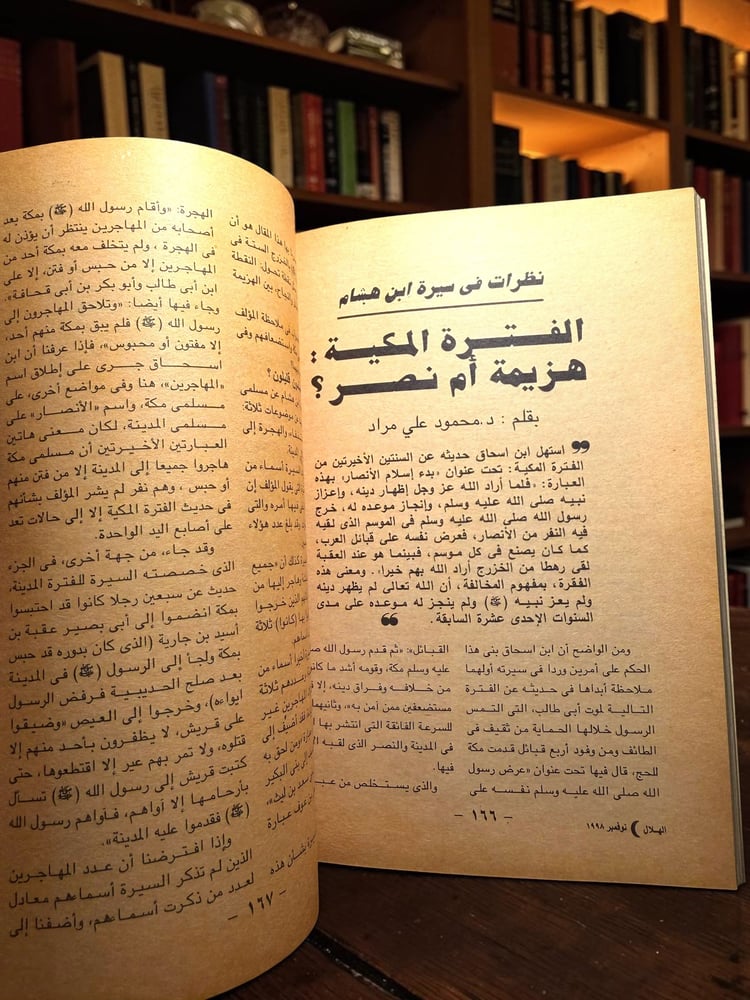 نظرات فى سيرة ابن هشام
الفـتـرة المكيـة :
هزيمة أم نصـر ؟
بقلم : د.محمود علي مراد
استهل ابن اسحاق حديثه عن السنتين الأخيرتين من
الفترة المكية: تحت عنوان «بدء إسلام الأنصار» بهذه
العبارة: «فلما أراد الله عز وجل إظهار دينه، وإعزاز
نبيه صلى الله عليه وسلم، وإنجاز موعده له، خرج
رسول الله صلى الله عليه وسلم فى الموسم الذى لقيه
فيه النفر من الأنصار، فعرض نفسه على قبائل العرب،
كما كان يصنع فى كل موسم، فبينما هو عند العقبة
لقى رهطا من الخزرج أراد الله بهم خيرا». ومعنى هذه
الفقرة، بمفهوم المخالفة، أن الله تعالى لم يظهر دينه
ولم يعز نبيه (ﷺ) ولم ينجز له موعده على مدى
السنوات الإحدى عشرة السابقة.
ومن الواضح أن ابن اسحاق بنى هذا
الحكم على أمرين وردا فى سيرته أولهما
ملاحظة أبداها فى حديثه عن الفترة
التالية لموت أبى طالب، التى التمس
الرسول خلالها الحماية من ثقيف فى
الطائف ومن وفود أربع قبائل قدمت مكة
للحج، قال فيها تحت عنوان «عرض رسول
الله صلى الله عليه وسلم نفسه على
القبائل»: «ثم قدم رسول الله
عليه وسلم مكة، وقومه أشد ما كانوا
من خلافه وفراق دينه، إلا
مستضعفين ممن آمن به»، وثانيهما
للسرعة الفائقة التى انتشر بها
فى المدينة والنصر الذى لقيه
فيها.
والذى يستخلص من
- ١٦٦ -
الهلال نوفمبر ١٩٩٨
هذا المقال هو أن
الخزرج الستة فى
نقطة تحول: النقطة
بين الهزيمة
فى ملاحظة المؤلف
واستضعافهم وفى
قليلون؟
هشام عن مسلمى
موضوعات ثلاثة:
والهجرة إلى
السيرة أسماء من
يقول المؤلف إن
أمره والتى
بلغ عدد هؤلاء
الهجرة: «وأقام رسول الله (ﷺ) بمكة بعد
أصحابه من المهاجرين ينتظر أن يؤذن له
فى الهجرة ، ولم يتخلف معه بمكة أحد من
المهاجرين إلا من حبس أو فتن، إلا على
ابن أبى طالب وأبو بكر بن أبى قحافة».
وجاء فيها أيضا: «وتلاحق المهاجرون إلى
رسول الله (ﷺ) فلم يبق بمكة منهم أحد،
إلا مفتون أو محبوس»، فإذا عرفنا أن ابن
اسحاق جرى على إطلاق اسم
«المهاجرين»، هنا وفى مواضع أخرى، على
مسلمى مكة، واسم «الأنصار» على
مسلمى المدينة، لكان معنى هاتين
العبارتين الأخيرتين أن مسلمى مكة
هاجروا جميعا إلى المدينة إلا من فتن منهم
أو حبس ، وهم نفر لم يشر المؤلف بشأنهم
فى حديث الفترة المكية إلا إلى حالات تعد
على أصابع اليد الواحدة.
وقد جاء، من جهة أخرى، فى الجزء
الذى خصصته السيرة للفترة المدينة،
حديث عن سبعين رجلا كانوا قد احتبسوا
بمكة انضموا إلى أبى بصير عقبة بن
أسيد بن جارية (الذى كان بدوره قد حبس
بمكة ولجأ إلى الرسول (ﷺ) فى المدينة
بعد صلح الحديبية فرفض الرسول
ايواءه)، وخرجوا إلى العيص «وضيقوا
على قريش، لا يظفرون بأحد منهم إلا
قتلوه، ولا تمر بهم عير إلا اقتطعوها، حتى
كتبت قريش إلى رسول الله (ﷺ) تسأل
بأرحامها إلا آواهم، فآواهم رسول الله
(ﷺ) فقدموا عليه المدينة».
وإذا افترضنا أن عدد المهاجرين
الذين لم تذكر السيرة أسماءهم معادل
لعدد من ذكرت أسماءهم، وأضفنا إلى
- ١٦٧ -